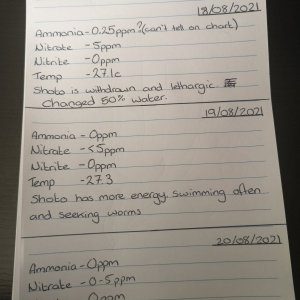 18/08/2021
Ammonia - 0.25ppm? (can't tell on chart)
Nitrate - 5ppm
Nitrite - 0ppm
Temp - 27.1c
Shoto is withdrawn and lethargic
Changed 50% water.
19/08/2021
Ammonia - 0ppm
Nitrate - <5ppm
Nitrite - 0ppm
Temp - 27.3
Shoto has more energy, swimming often
and seeking worms
20/08/2021
Ammonia - 0ppm
Nitrate - 0-5ppm
0ppm